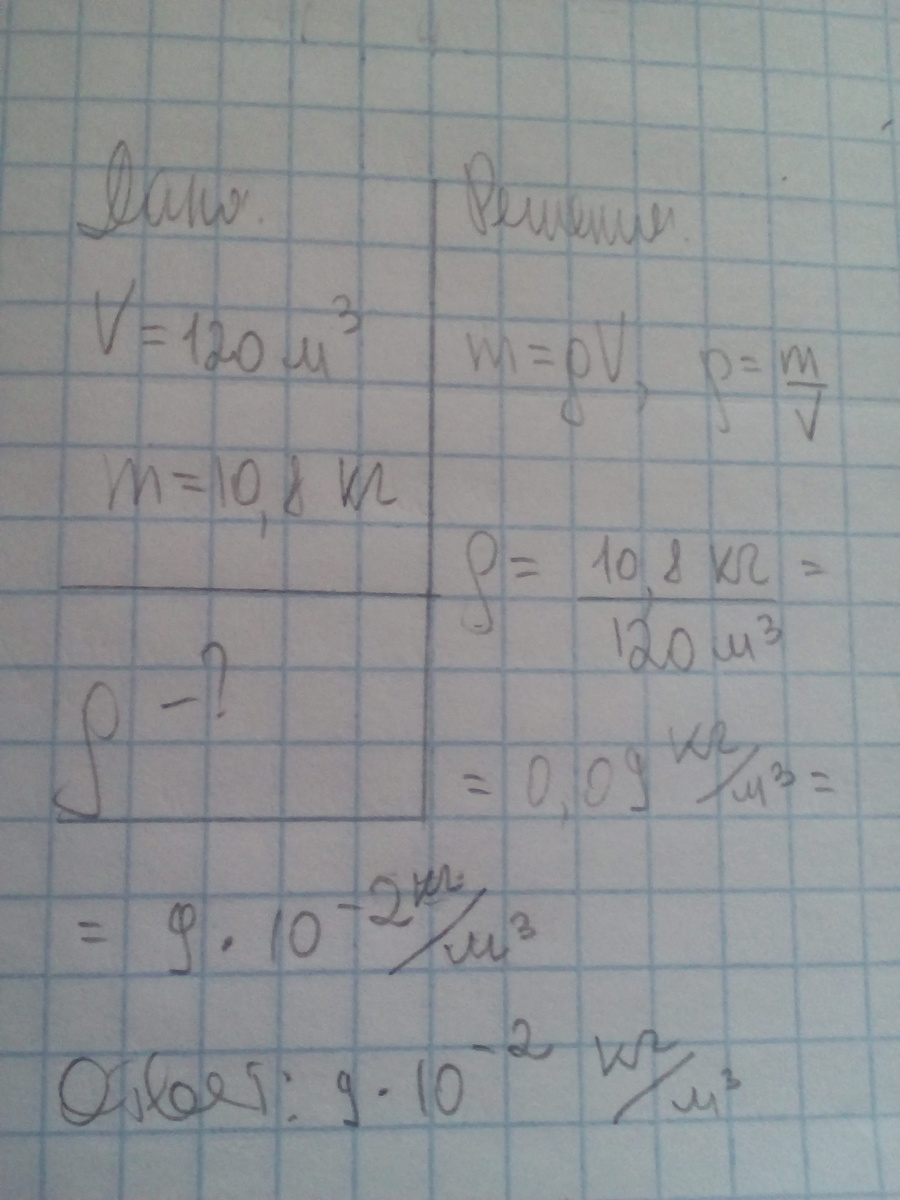 Дано.
V = 120 м³
m = 10,8 кг
ρ - ?
Решение.
m = ρV, ρ = m/V
ρ = 10,8 кг / 120 м³ =
= 0,09 кг/м³ =
= 9 · 10⁻² кг/м³
Ответ: 9 · 10⁻² кг/м³